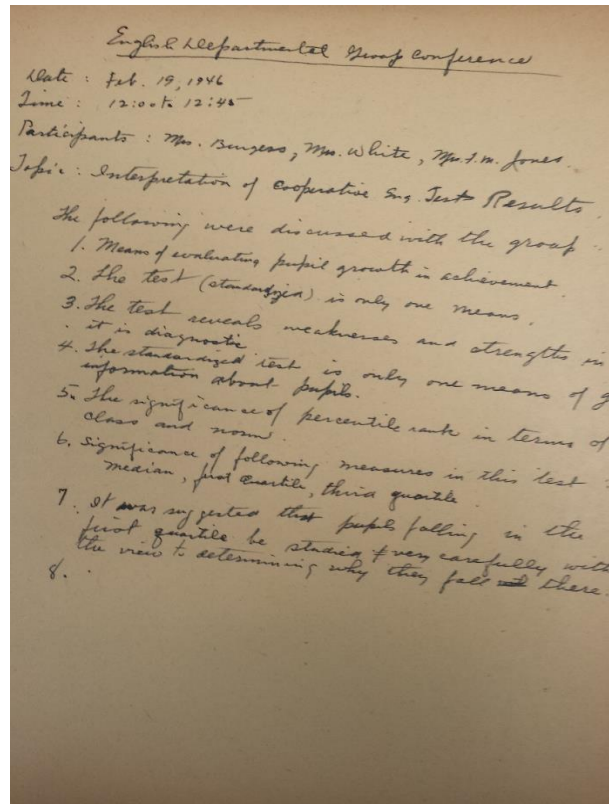 English Departmental Group Conference
Date : Feb. 19, 1946
Time : 12:00 to 12:45
Participants : Mrs. Burgess, Mrs. White, Mrs. F. M. Jones.
Topic : Interpretation of Cooperative Eng. Test Results.
The following were discussed with the group :
1. Means of evaluating pupil growth in achievement.
2. The test (standardized) is only one means.
3. The test reveals weaknesses and strengths in
it is diagnostic
4. The standardized test is only one means of g
information about pupils.
5. The significance of percentile rank in terms of
class and norm.
6. Significance of following measures in this test
median, first quartile, third quartile.
7. It was suggested that pupils falling in the
first quartile be studied very carefully with
the view to determining why they fall there.
8.